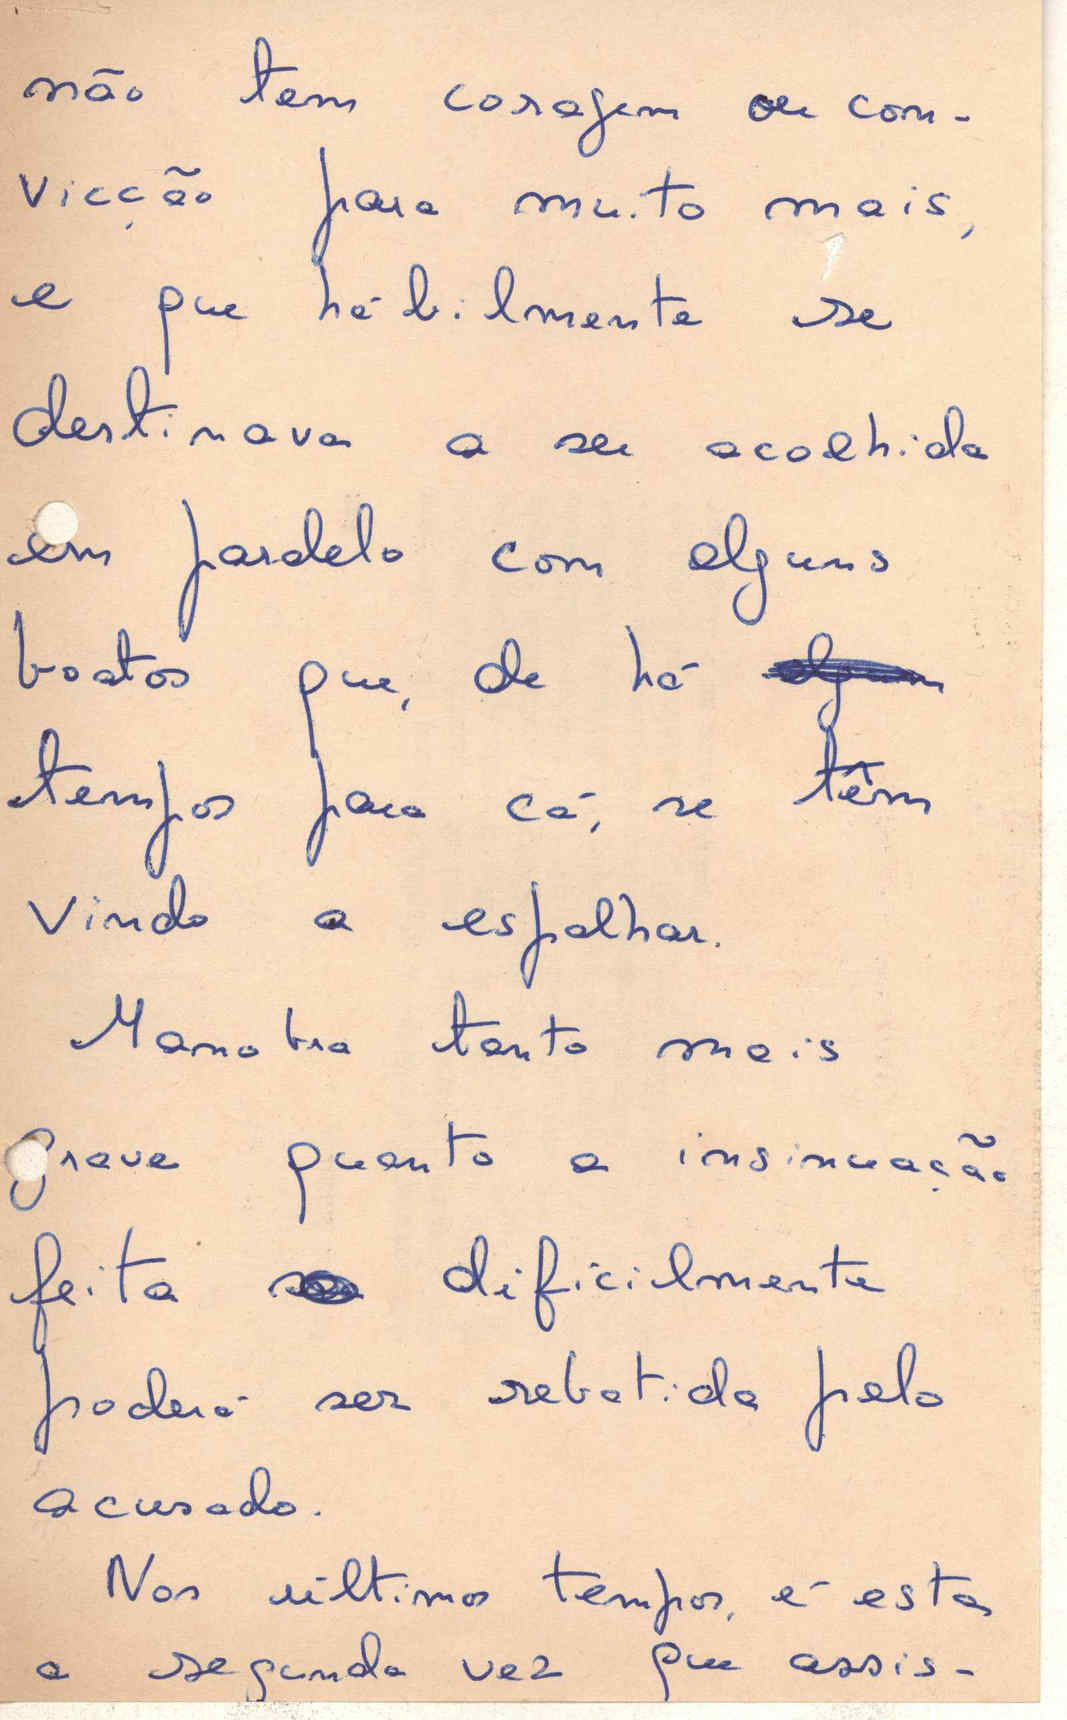 não tem coragem ou con-
vicção para muito mais,
e que hábilmente se
destinava a ser acolhida
em paralelo com alguns
boatos que, de há
tempos para cá, se têm
vindo a espalhar.
Manobra tanto mais
grave quanto a insinuação
feita difícilmente
poderá ser rebatida pelo
acusado.
Nos últimos tempos, é esta
a segunda vez que assis-